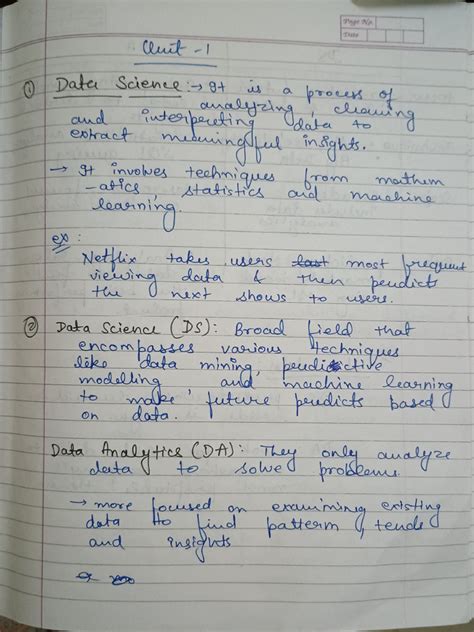 Page No.
Date
Unit - 1
① Data Science :→ It is a process of
analyzing, cleaning
and interpreting data to
extract meaningful insights.
→ It involves techniques from mathem
-atics, statistics and machine
learning.
ex :
Netflix takes users last most frequent
viewing data & then perdicts
the next shows to users.
② Data Science (DS): Broad field that
encompasses various techniques
like data mining, perdictive
modelling and machine learning
to make future perdicts based
on data.
Data Analytics (DA): They only analyze
data to solve problems.
→ more focused on examining existing
data to find pattern, tends
and insights